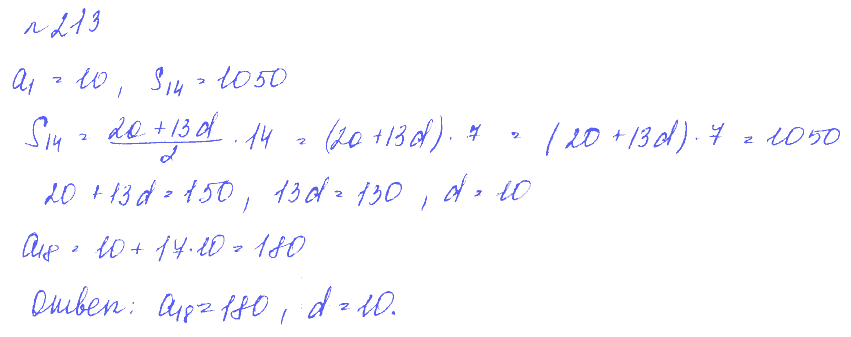 №213
a₁ = 10, S₁₄ = 1050
S₁₄ = (20 + 13d)/2 · 14 = (20 + 13d) · 7 = (20 + 13d) · 7 = 1050
20 + 13d = 150, 13d = 130, d = 10
a₁₈ = 10 + 17·10 = 180
Ответ: a₁₈ = 180, d = 10.